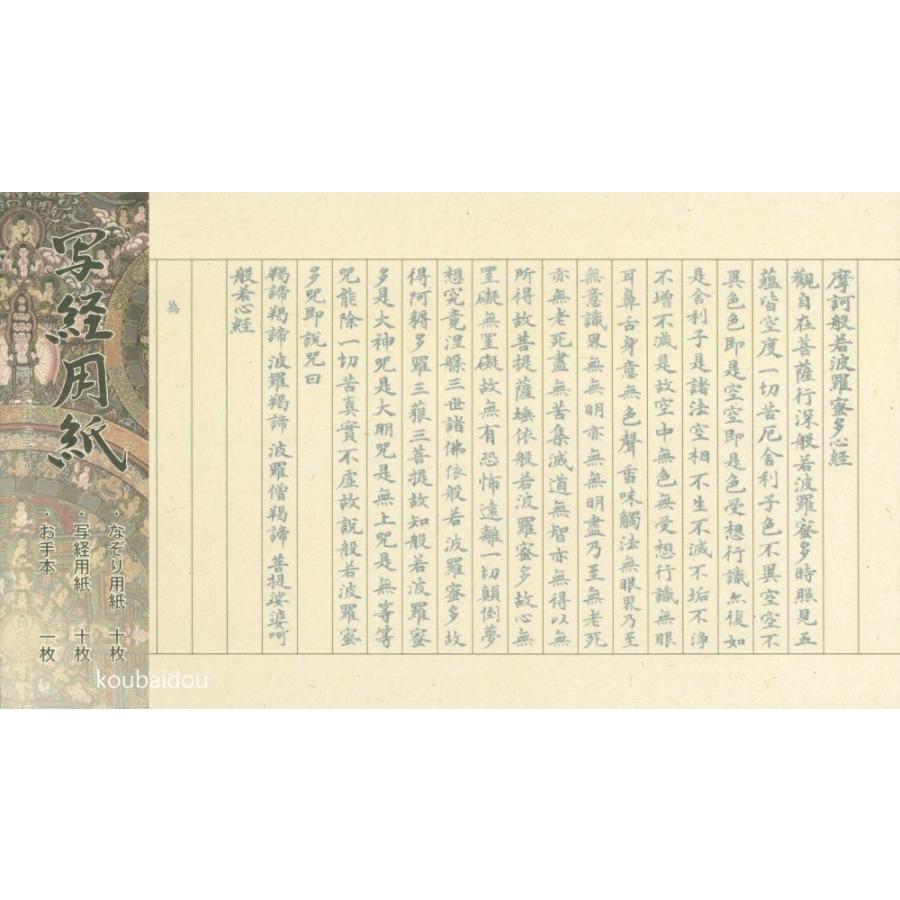 摩訶般若波羅蜜多心経
觀自在菩薩行深般若波羅蜜多時照見五
蘊皆空度一切苦厄舍利子色不異空空不
異色色即是空空即是色受想行識亦復如
是舍利子是諸法空相不生不滅不垢不淨
不增不減是故空中無色無受想行識無眼
耳鼻舌身意無色聲香味觸法無眼界乃至
無意識界無無明亦無無明盡乃至無老死
亦無老死盡無苦集滅道無智亦無得以無
所得故菩提薩埵依般若波羅蜜多故心無
罣礙無罣礙故無有恐怖遠離一切顛倒夢
想究竟涅槃三世諸佛依般若波羅蜜多故
得阿耨多羅三藐三菩提故知般若波羅蜜
多是大神咒是大明咒是無上咒是無等等
咒能除一切苦真實不虛故說般若波羅蜜
多咒即說咒曰
羯諦羯諦 波羅羯諦 波羅僧羯諦 菩提娑婆呵
般若心経
為
写経用紙
・なぞり用紙 十枚
・写経用紙 十枚
・お手本 一枚
koubaidou